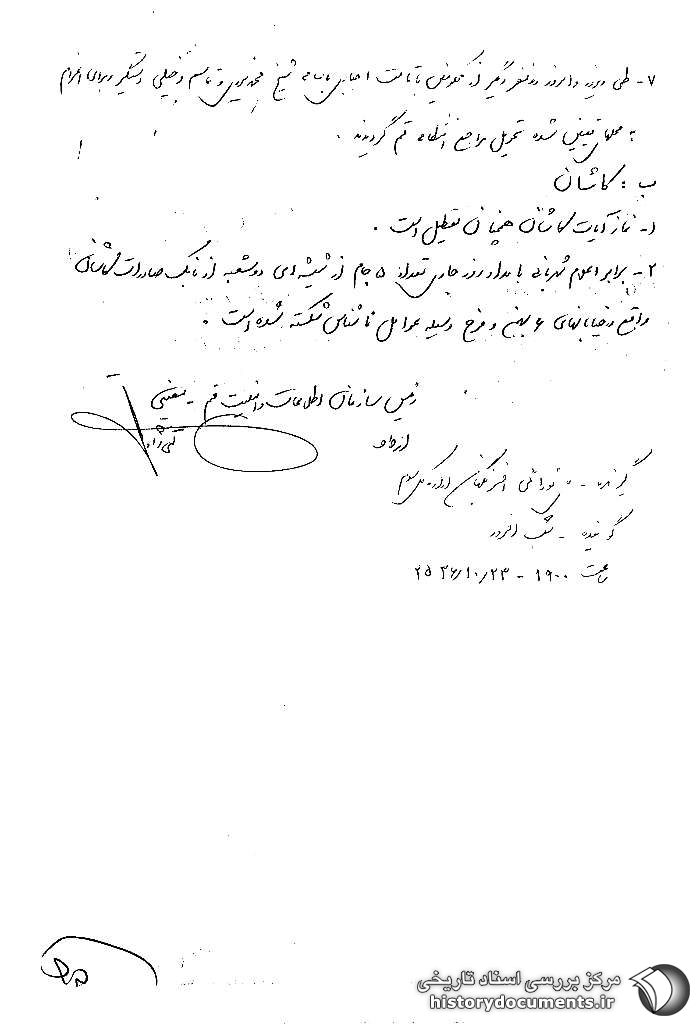 ۷- طی دیروز و امروز دو نفر دیگر از محکومین باقامت اجباری باسامی شیخ و قاسم دخیلی دستگیر و برای اعزام
به محلهای تعیین شده تحویل مراجع انتظامی قم گردیدند .
ب : کاشان
۱- نماز آیات کاشان همچنان تعطیل است .
۲- برابر اعلام شهربانی بامداد روز جاری تعداد ۵ جام از شیشه‌های دو شعبه از بانک صادرات کاشان
واقع در خیابانهای ۶ بهمن و فرح وسیله عوامل ناشناس شکسته شده است .
رئیس سازمان اطلاعات و امنیت قم - معینی
از طرف
گیرنده - نگهبان اداره کل سوم
گوینده - شب افروز
ساعت ۱۹۰۰ - ۲۵۳۶/۱۰/۲۳
مرکز بررسی اسناد تاریخی
historydocuments.ir